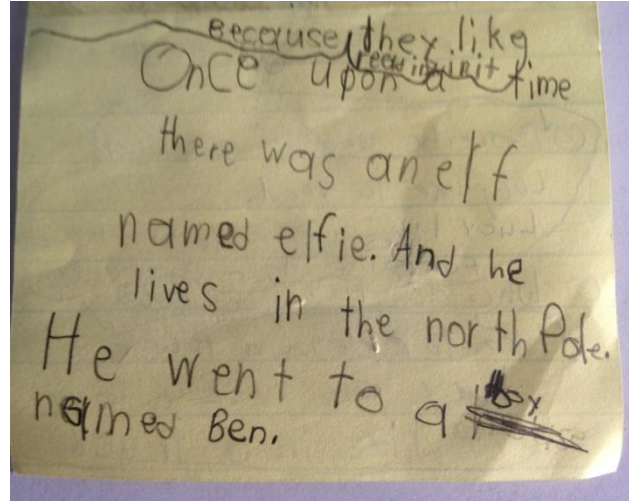 Because they like
reading in it
Once upon a time
there was an elf
named elfie. And he
lives in the north Pole.
He went to a
named Ben.